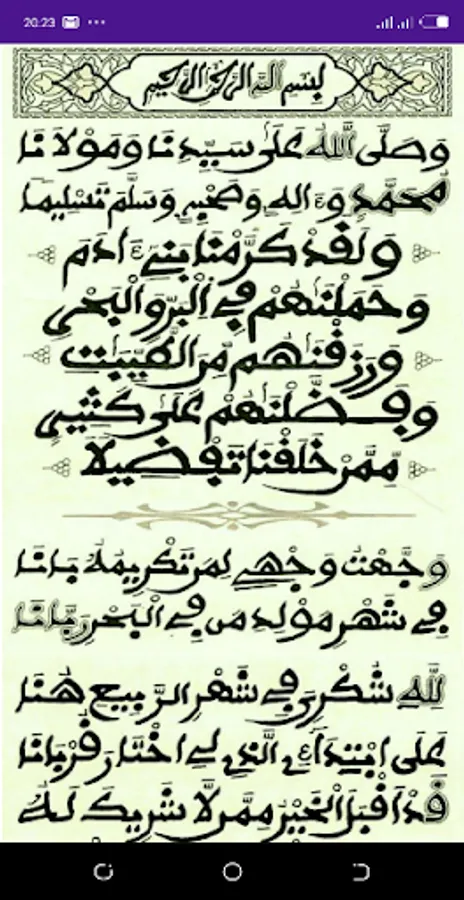 20:23
بِسْمِ اللَّهِ الرَّحْمَٰنِ الرَّحِيمِ
وَصَلَّى اللَّهُ عَلَى سَيِّدِنَا وَمَوْلَانَا
مُحَمَّدٍ وَءَالِهِ وَصَحْبِهِ وَسَلَّمَ تَسْلِيمًا
وَلَقَدْ كَرَّمْنَا بَنِي ءَادَمَ
وَحَمَلْنَٰهُمْ فِي الْبَرِّ وَالْبَحْرِ
وَرَزَقْنَٰهُم مِّنَ الطَّيِّبَٰتِ
وَفَضَّلْنَٰهُمْ عَلَى كَثِيرٍ
مِّمَّنْ خَلَقْنَا تَفْضِيلًا
وَجَّهْتُ وَجْهِي لِمَن تَكْرِيمُهُ بَانَا
فِي شَهْرِ مَوْلِدِ مَن فِي الْبَحْرِ رَبَّانَا
لِلَّهِ شُكْرِي فِي شَهْرِ الرَّبِيعِ هُنَا
عَلَى ابْتِدَاءِي الَّذِي لِي اخْتَارَ قُرْبَانَا
قَدْ أَقْبَلَ الْخَيْرُ مِمَّن لَّا شَرِيكَ لَهُ